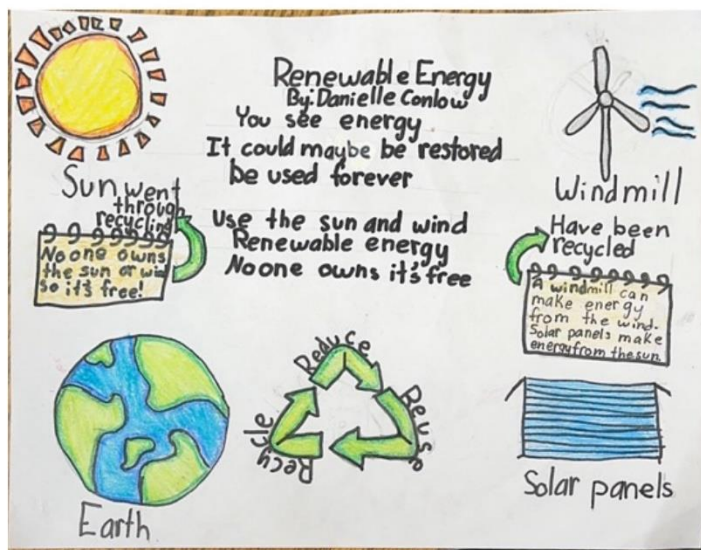 Renewable Energy
By: Danielle Conlow
You see energy
It could maybe be restored
be used forever
Use the sun and wind
Renewable energy
No one owns it's free
Sun went
through
recycling
No one owns
the sun or wind
so it's free!
Windmill
Have been
recycled
A windmill can
make energy
from the wind.
Solar panels make
energy from the sun.
Earth
Reduce
Reuse
Recycle
Solar panels